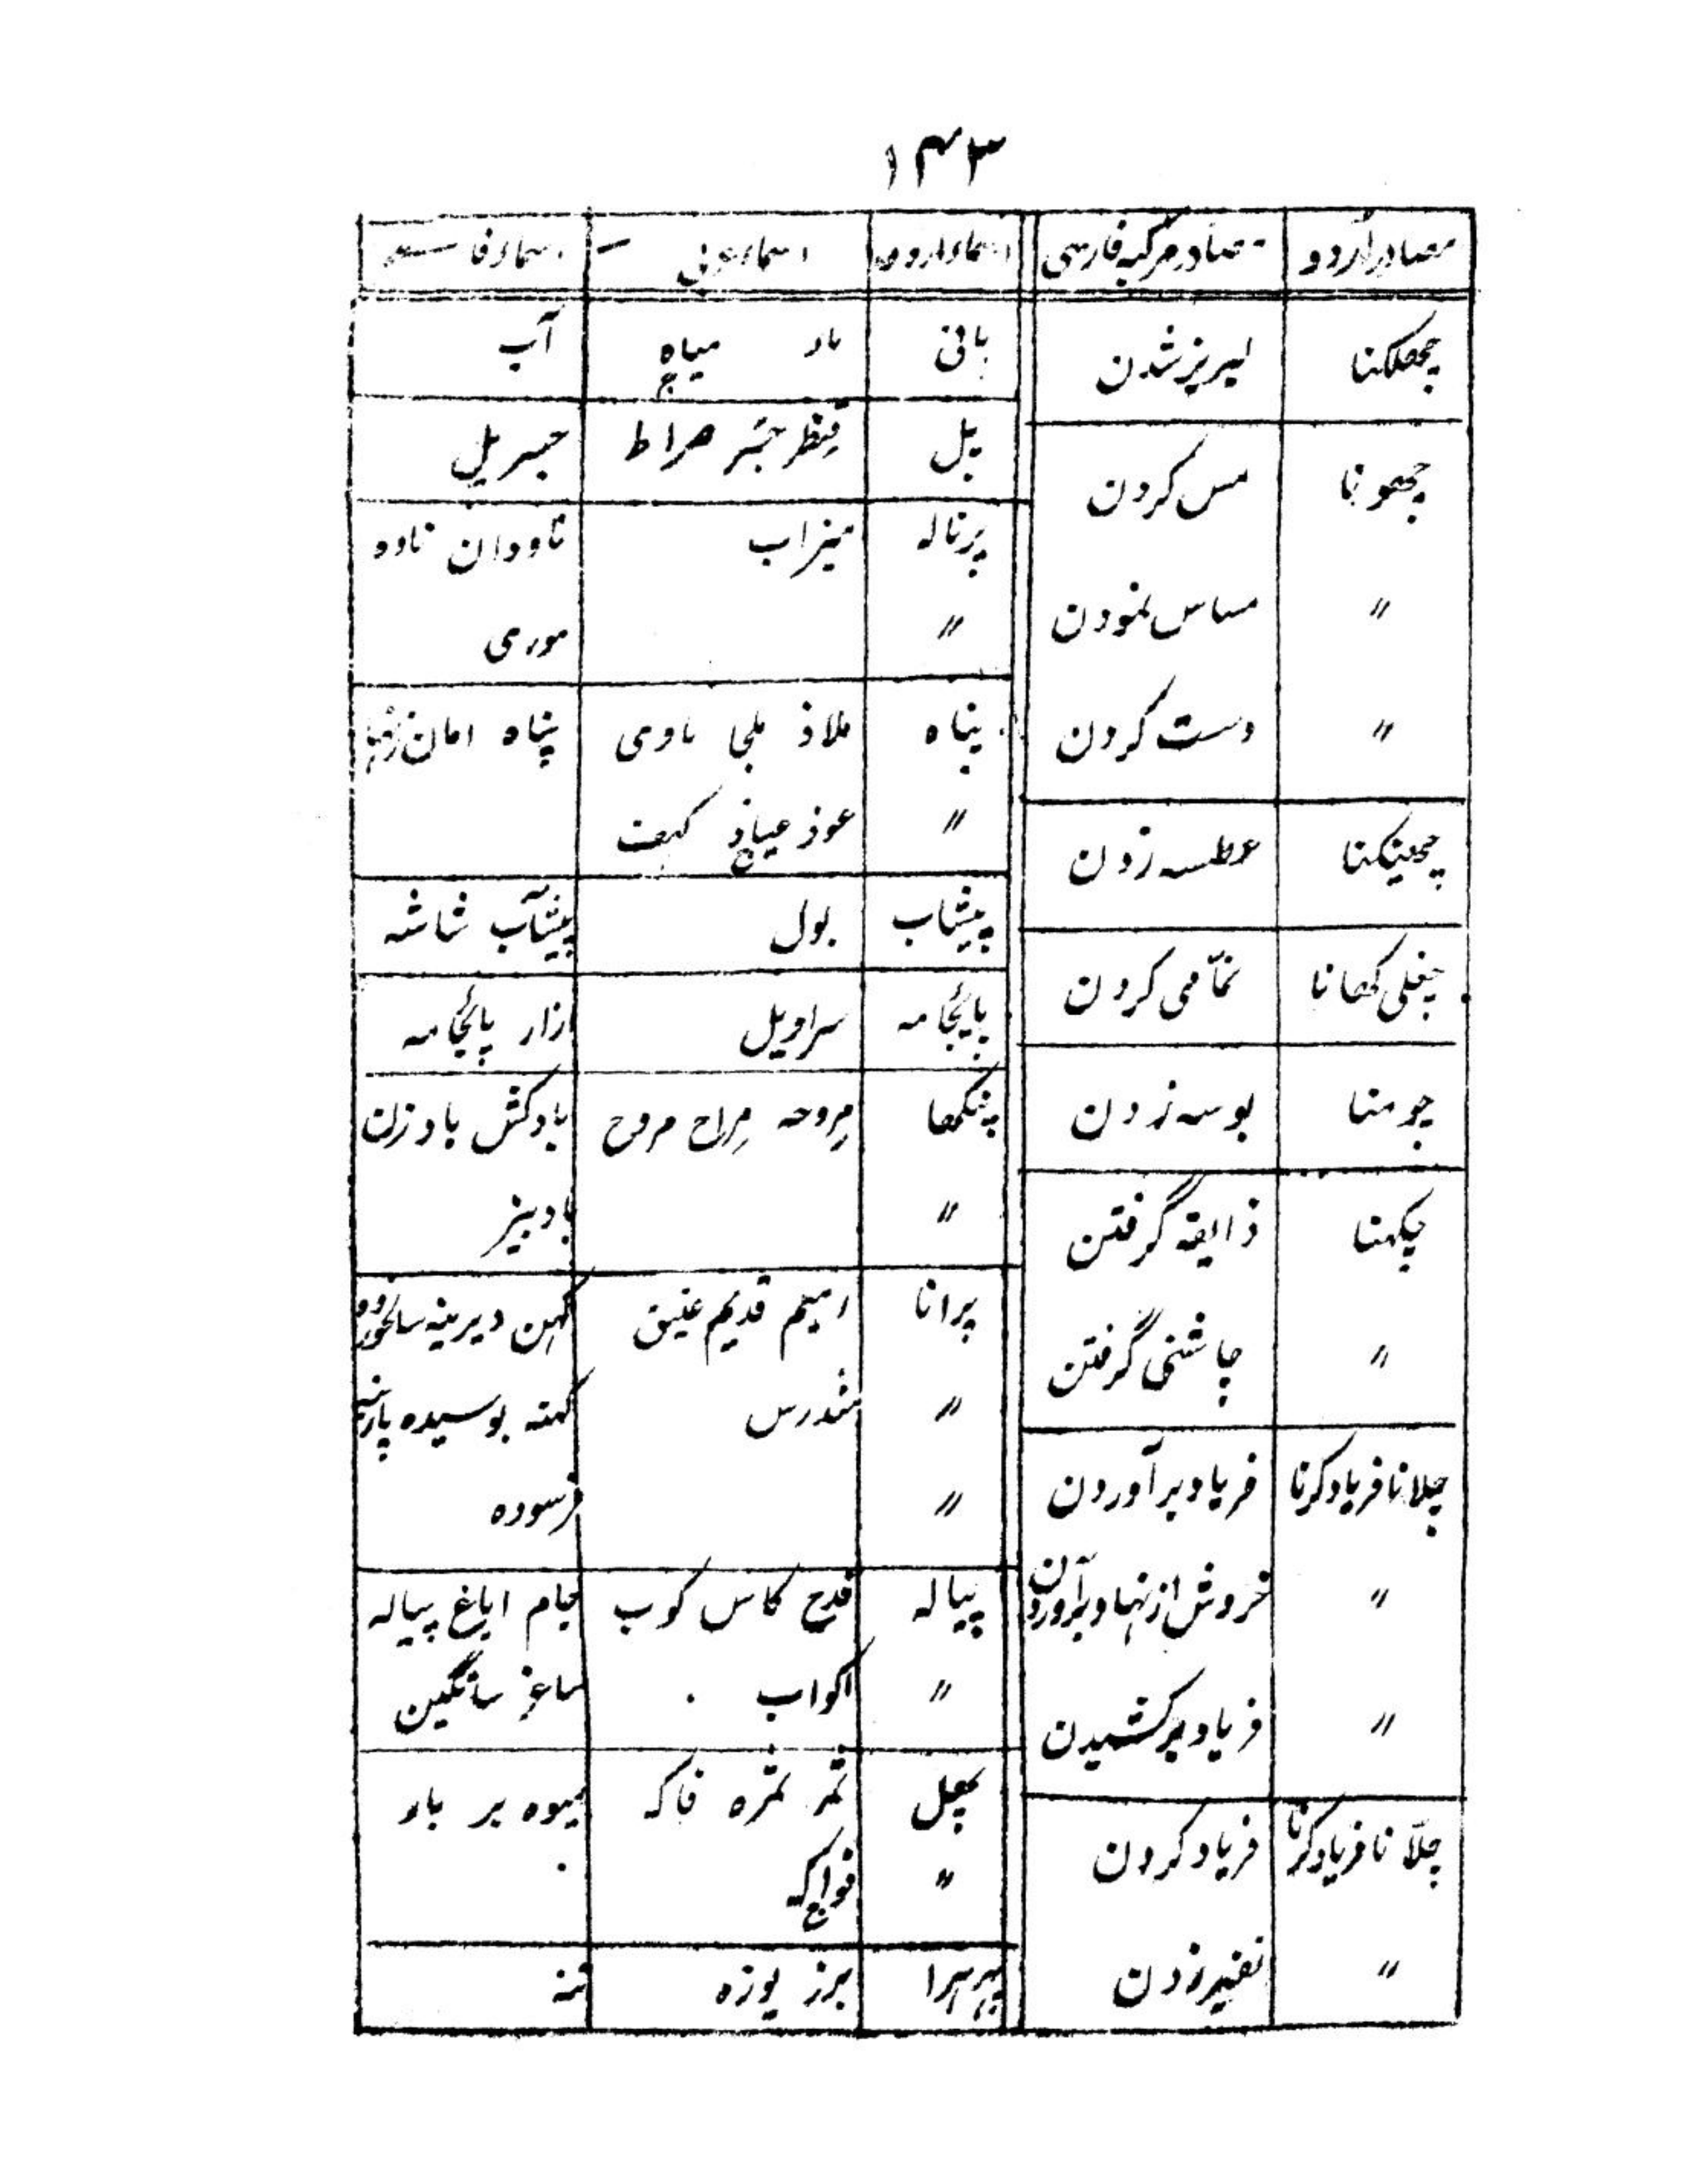 ۱۴۳
مصادر اُردو مصادر مرکبہ فارسی
چھلکنا لبریز شدن
چھونا مس کردن
〃 مساس نمودن
〃 دست کردن
چھینکنا عطسہ زدن
چغلی کھانا نمّامی کردن
چومنا بوسہ زدن
چکہنا ذایقہ گرفتن
〃 چاشنی گرفتن
چلانا فریاد کرنا فریاد برآوردن
〃 خروش از نہاد برآوردن
〃 فریاد برکشیدن
چلّانا فریاد کرنا فریاد کردن
〃 نفیر زدن
اسماء اردو اسماء عربی اسماء فارسی
پانی ماء میاہ آب
پل قنطر جسر صراط جسر پل
پرنالہ میزاب ناودان ناوہ
〃 موری
پناہ ملاذ ملجا ماوی پناہ امان
〃 عوذ عیاذ کہف
پیشاب بول پیشاب شاشہ
پایجامہ سراویل ازار پائجامہ
پنکھا مروحہ مراح مروح بادکش بادزن
〃 بادبیز
پرانا رمیم قدیم عتیق کہن دیرینہ سالخوردہ
〃 مندرس کہنہ بوسیدہ پارینہ
〃 فرسودہ
پیالہ قدح کاس کوب جام ایاغ پیالہ
〃 اکواب ساغر ساتگین
پھل ثمر ثمرہ فاکہ میوہ بر بار
〃 فواکہ